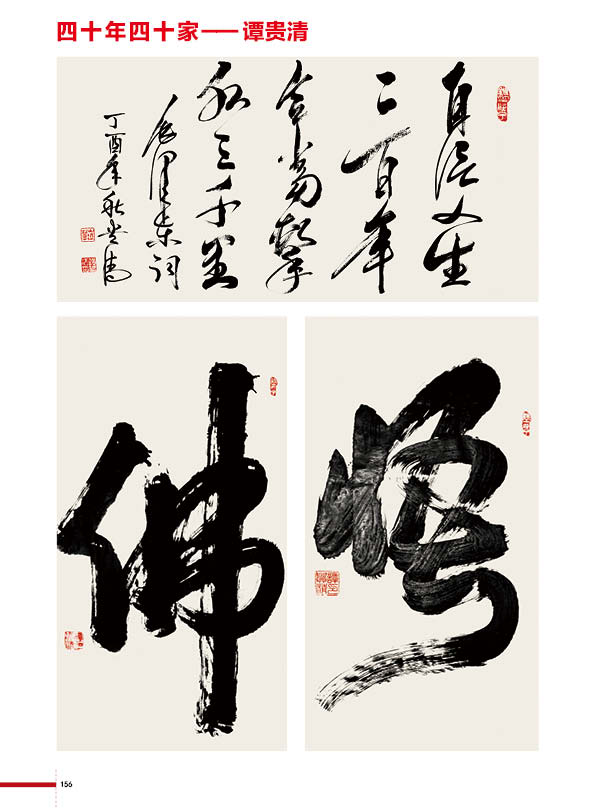 四十年四十家——谭贵清
自信人生
二百年
會當擊
水三千里
毛澤東词
丁酉年秋贵清
佛
悟
156